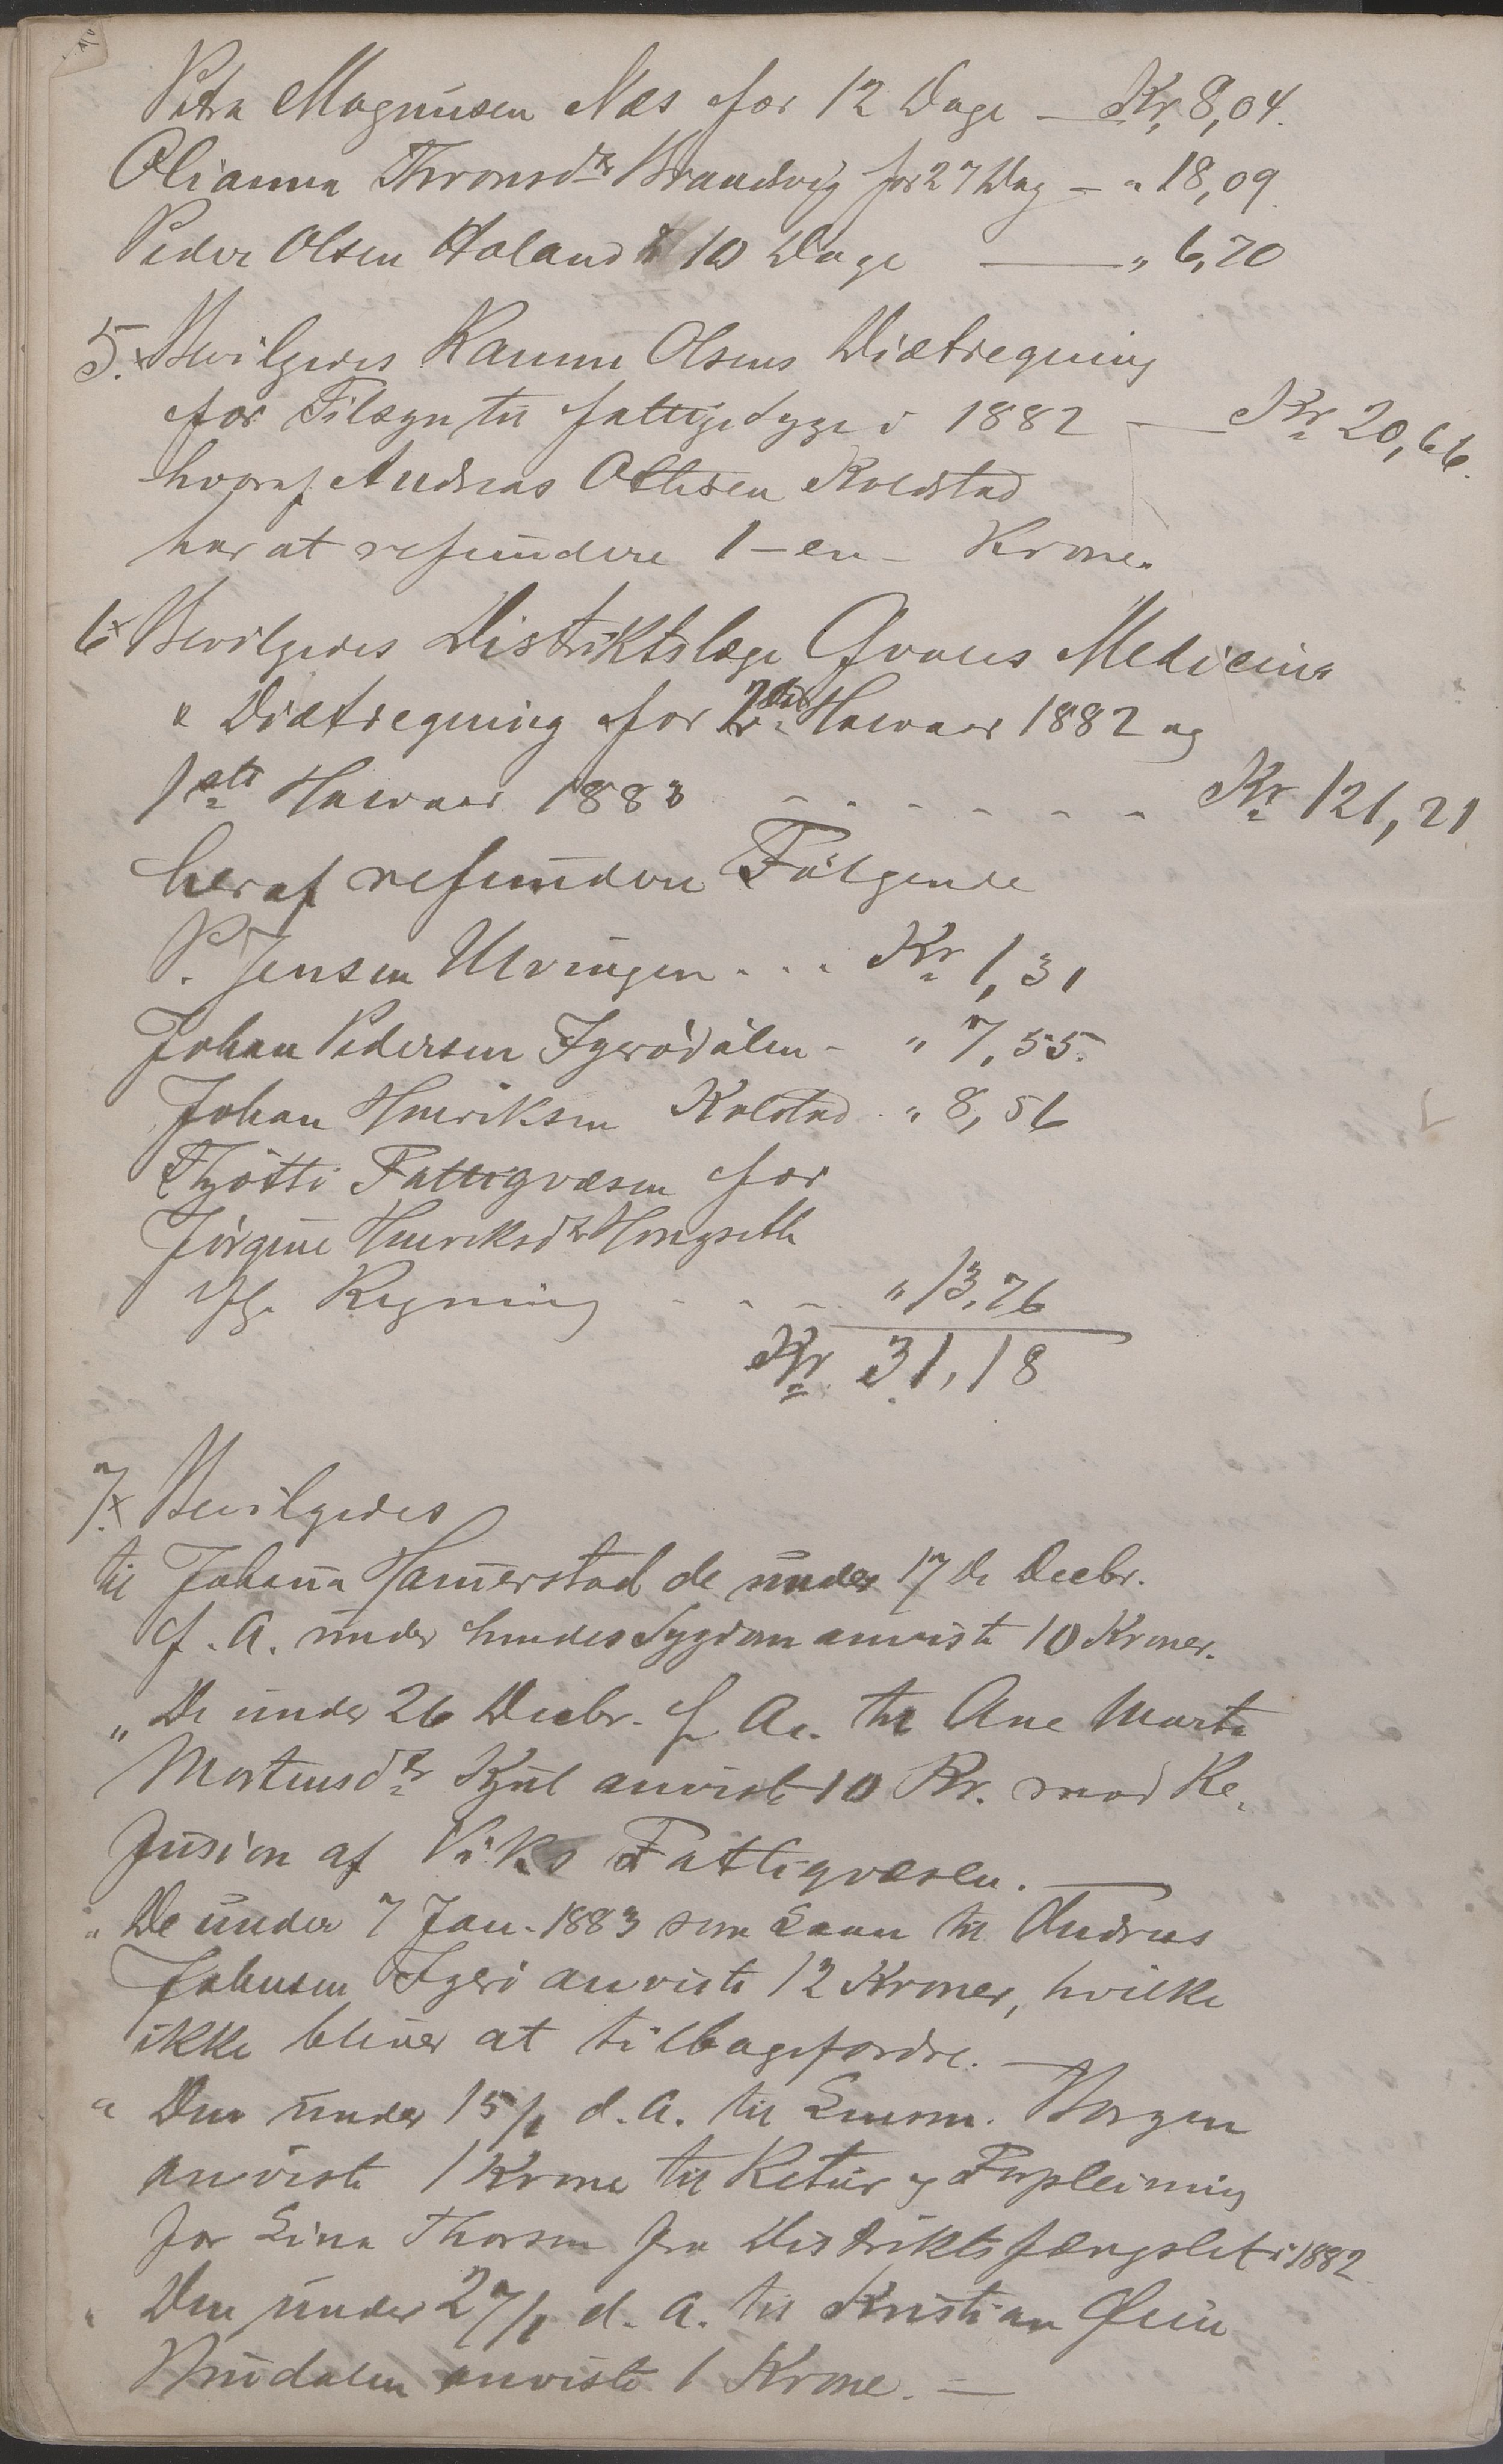 Petra Magnusen Næs for 12 Dage — Kr. 8,04.
Olianna Thronsdtr Brandsvig for 27 Dag — " 18,09.
Peder Olsen Haland 10 Dage —— " 6,70
5. Bevilgedes Ranun Olsens Diætregning
for Tilsyn til fattige Syge i 1882 — Kr. 20,66.
hvoraf Andreas Ottesen Kolstad
har at refundere 1 - en - Krone.
6 Bevilgedes Distriktslæge Qvales Medicin
" Diætregning for 2det Halvaar 1882 og
1ste Halvaar 1883 - - - - - - - Kr. 121,21
heraf refunderer Følgende
P. Jensen Ulvingen . . . Kr. 1,31
Johan Pedersen Igerødalen - " 7,55.
Johan Henriksen Kolstad . " 8,56
Thjøttø Fattigvæsen for
Jörgine Henriksdtr Hongseth
ifg. Regning - - - " 13,76
Kr. 31,18
7. Bevilgedes
til Johanna Hamerstad de under 17de Decbr.
f. A. under hendes Sygdom anviste 10 Kroner.
" De under 26 Decbr. f. A. til Ane Marta
Mortensdtr anviste 10 Kr. mod Re-
fusion af Viks Fattigvæsen. —
" De under 7 Jan. 1883 som Laan til Andreas
Johnsen Igerø anviste 12 Kroner, hvilke
ikke bliver at tilbagefordre. —
" Den under 15/1 d. A. til Lensm. Borgen
anviste 1 Krone til Retur og Forpleining
for Lina Thorsen fra Distriktsfængslet i 1882.
" Den under 27/1 d. A. til Kristian
anviste 1 Krone. —